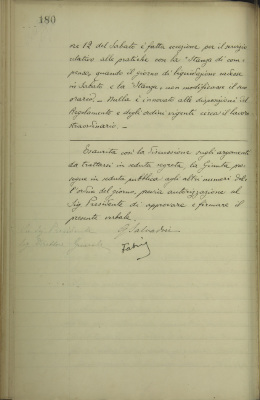 180
ne 12 del Sabato è fatta eccezione per il servizio
relativo alle pratiche con la "Stanza di com-
pensa", quando il giorno di liquidazione cadesse
in Sabato e la "Stanza" non modificasse il suo
orario. – Nulla è innovato alle disposizioni del
Regolamento e degli ordini vigenti circa il lavoro
straordinario. –
Esaurita così la discussione sugli argomenti
da trattarsi in seduta segreta, la Giunta, pro-
segue in seduta pubblica agli altri numeri del-
l'ordine del giorno, previa autorizzazione al
Sig. Presidente di approvare e firmare il
presente verbale.
Il Presidente
Il Segretario